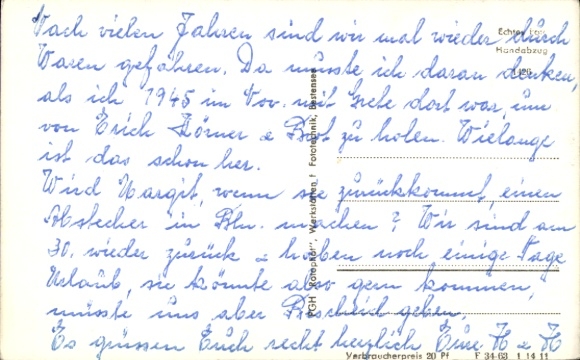 Nach vielen Jahren sind wir mal wieder durch
Waren gefahren. Da müsste ich daran denken,
als ich 1945 im Nov. mit Grete dort war, um
von Erich Körner & Brot zu holen. Wielange
ist das schon her.
Wird Margit, wenn sie zurückkommt, einen
Abstecher in Bln. machen? Wir sind am
30. wieder zurück & haben noch einige Tage
Urlaub, sie könnte also gern kommen,
müsste uns aber Bescheid geben.
Es grüssen Euch recht herzlich Eure H & H
Echter
Handabzug
PGH "Rotophot", Werkstätten f. Fototechnik, Bestensee
Verbraucherpreis 20 Pf F 34-63 1 14 11